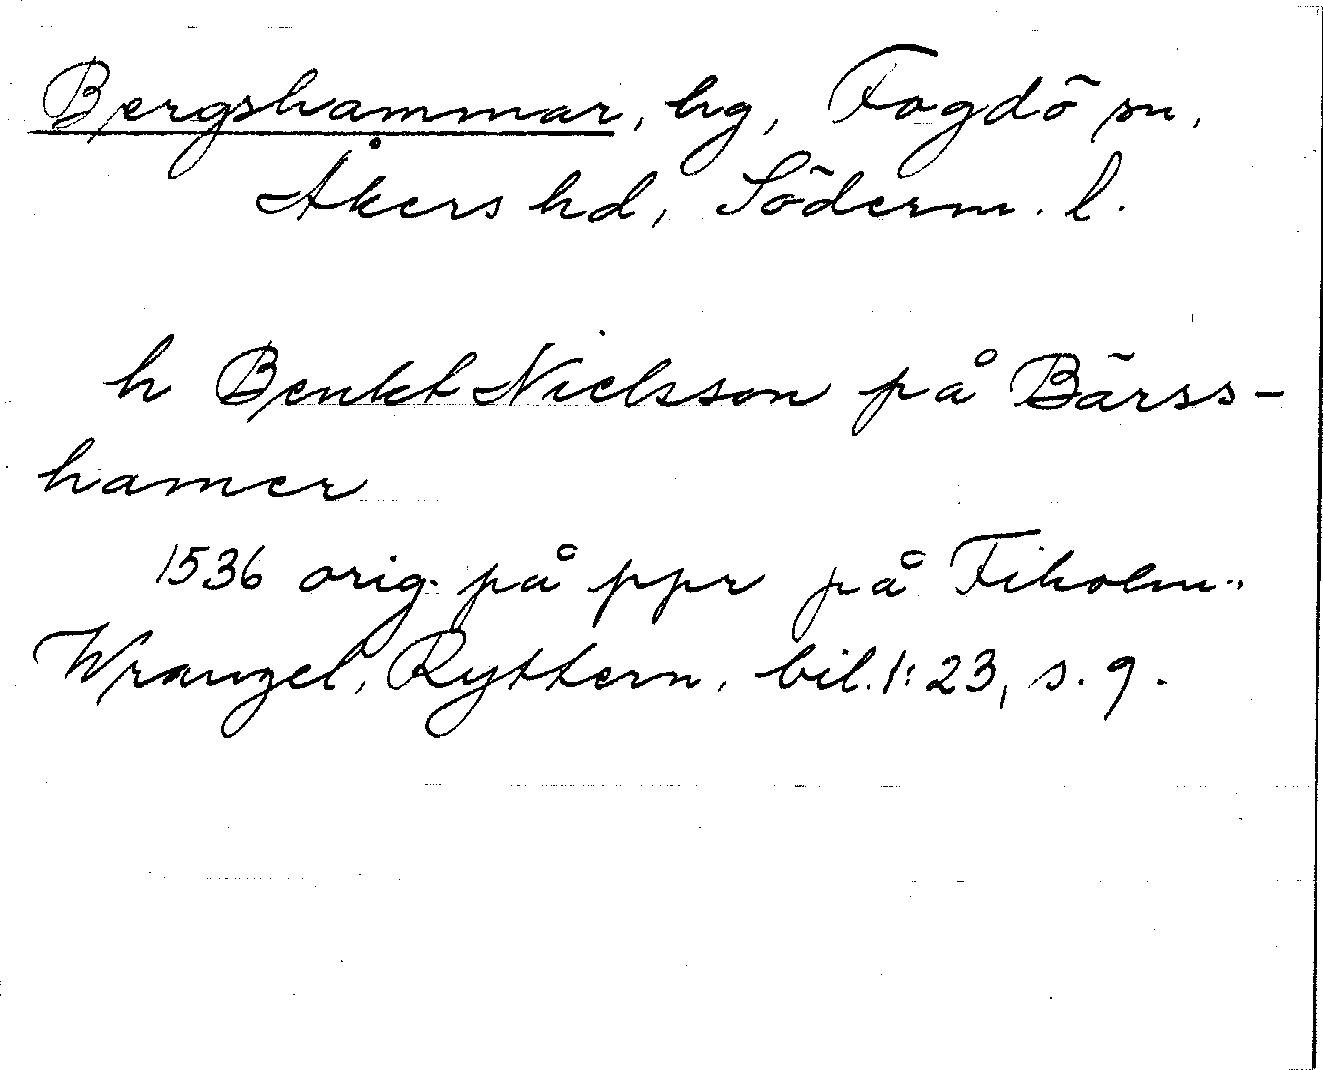 Bergshammar, hg, Fogdö sn,
Åkers hd, Söderm. l.
h Benkt Nielsson på Bärss-
hamer
1536 orig. på ppr på Fiholm.
Wrangel, Ryttern, bil. 1:23, s. 9.